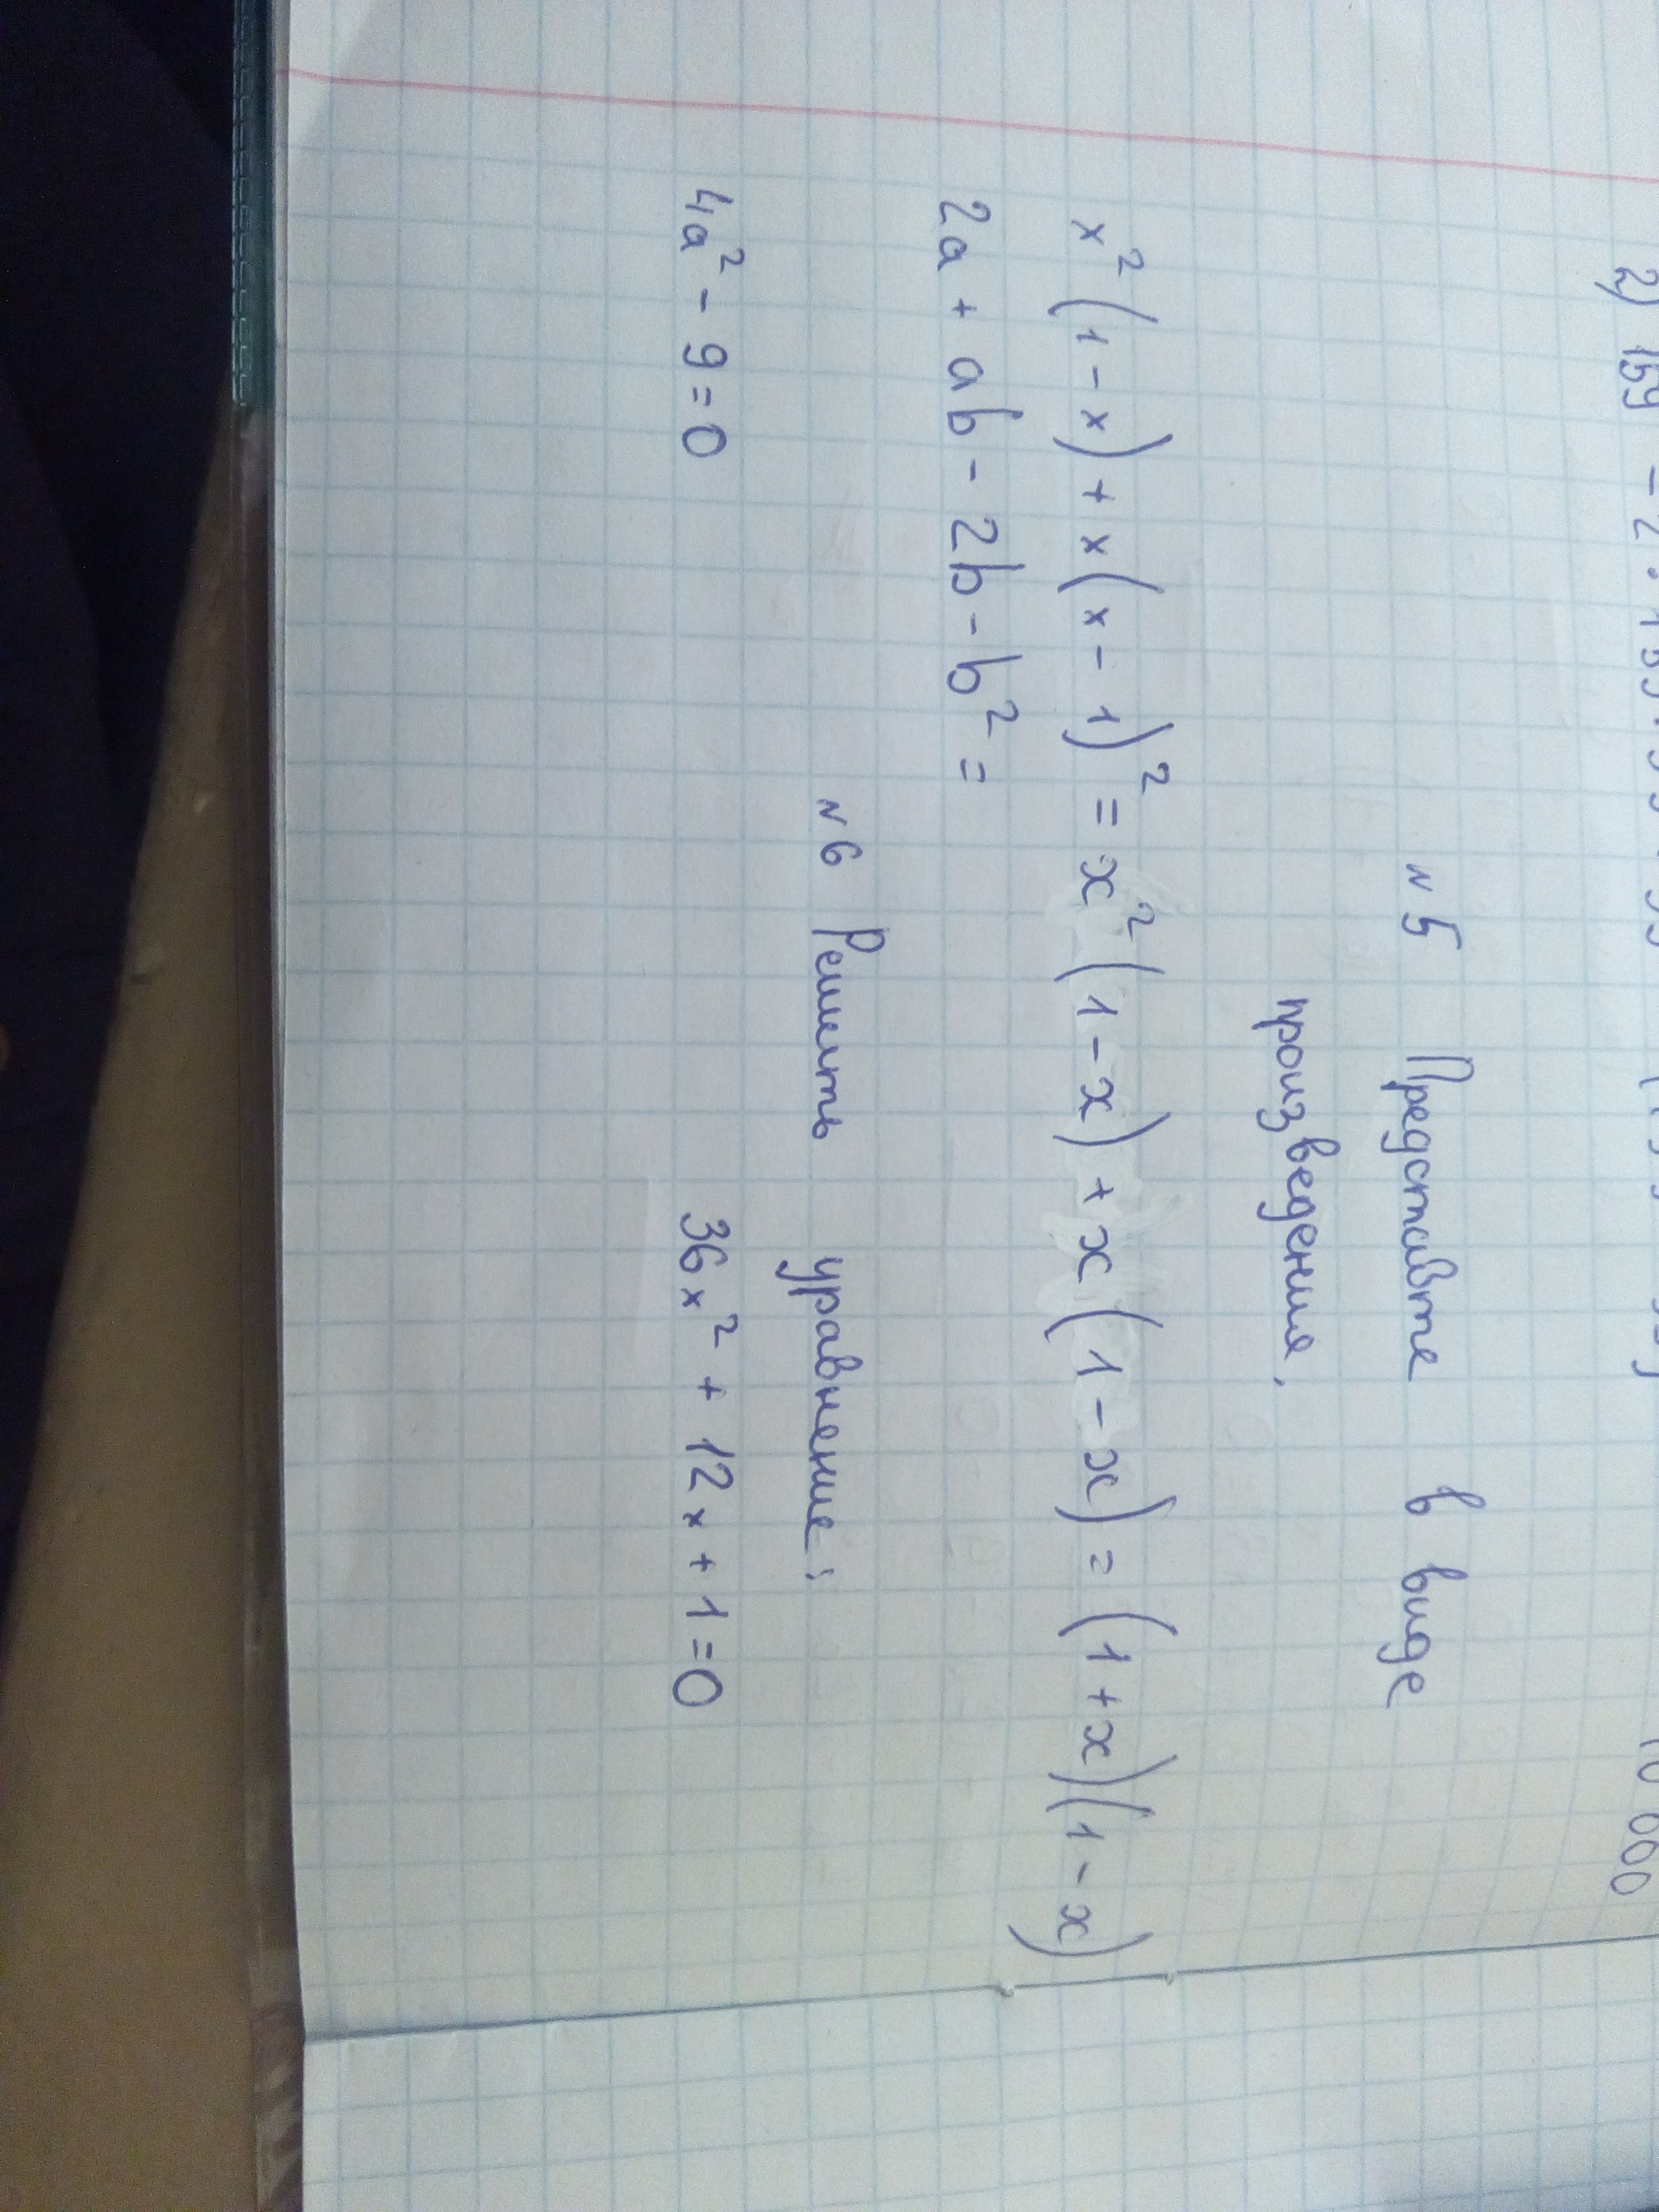 2)
10 000
№5 Представте в виде
произведения,
x² (1 - x) + x (x - 1)² = x² (1 - x) + x (1 - x) = (1 + x)(1 - x)
2a + ab - 2b - b² =
№6 Решить уравнение:
4a² - 9 = 0 36x² + 12x + 1 = 0